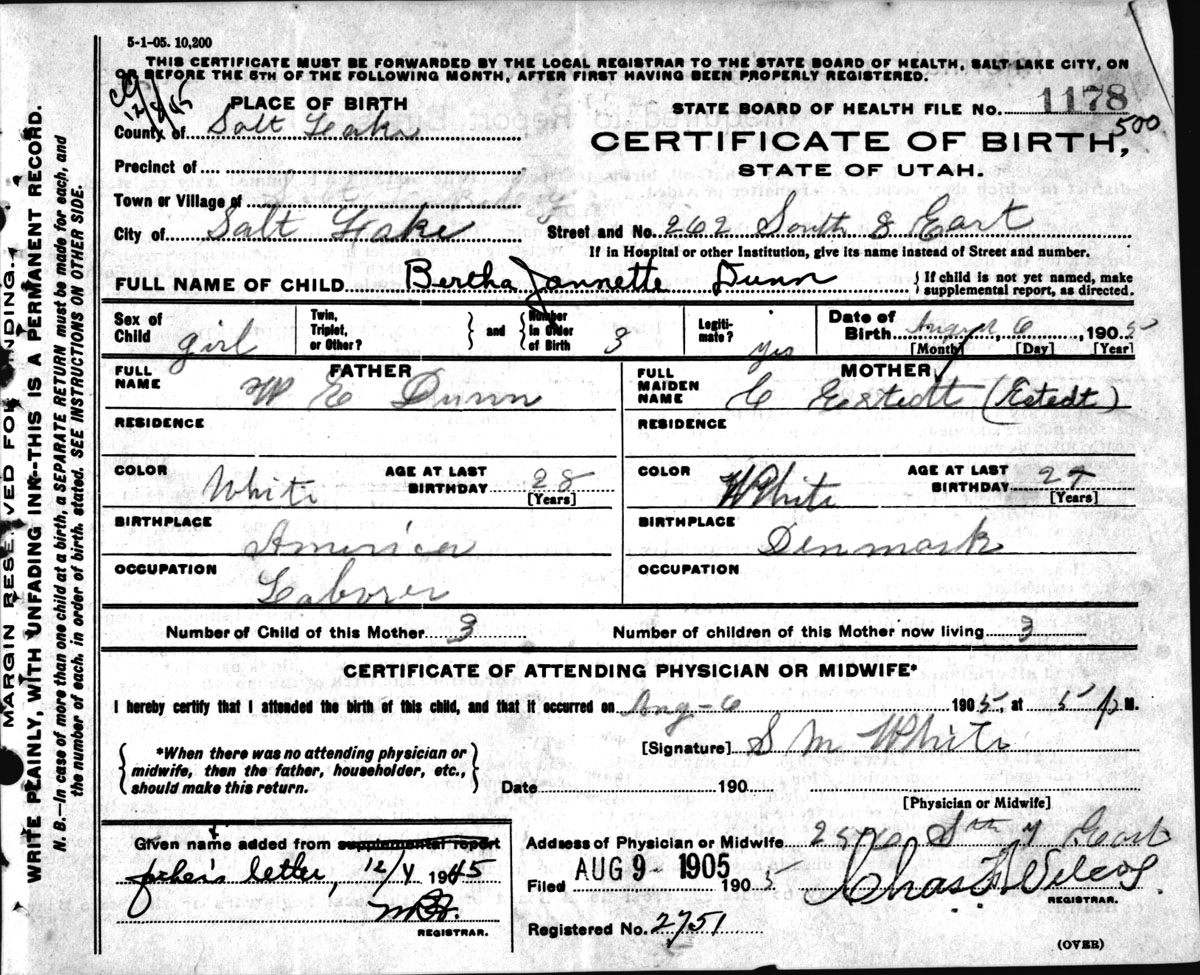 5-1-05. 10,200
THIS CERTIFICATE MUST BE FORWARDED BY THE LOCAL REGISTRAR TO THE STATE BOARD OF HEALTH, SALT LAKE CITY, ON
OR BEFORE THE 5TH OF THE FOLLOWING MONTH, AFTER FIRST HAVING BEEN PROPERLY REGISTERED.
12/8/45
PLACE OF BIRTH
County of Salt Lake
Precinct of
Town or Village of
City of Salt Lake
STATE BOARD OF HEALTH FILE No. 1178
500
CERTIFICATE OF BIRTH,
STATE OF UTAH.
Street and No. 262 South 8 East
If in Hospital or other Institution, give its name instead of Street and number.
FULL NAME OF CHILD Bertha Jannette Dunn { If child is not yet named, make
supplemental report, as directed.
Sex of Child girl
Twin, Triplet, or Other? } and { Number in Order of Birth 3
Legiti-mate? yes
Date of Birth August 6, 1905
[Month] [Day] [Year]
FATHER
FULL NAME W E Dunn
RESIDENCE
COLOR White AGE AT LAST BIRTHDAY 28 [Years]
BIRTHPLACE America
OCCUPATION Laborer
MOTHER
FULL MAIDEN NAME C Estedt (Estedt)
RESIDENCE
COLOR White AGE AT LAST BIRTHDAY [Years]
BIRTHPLACE Denmark
OCCUPATION
Number of Child of this Mother 3 Number of children of this Mother now living 3
CERTIFICATE OF ATTENDING PHYSICIAN OR MIDWIFE*
I hereby certify that I attended the birth of this child, and that it occurred on Aug-6 1905, at 5 p M.
{ *When there was no attending physician or
midwife, then the father, householder, etc.,
should make this return. }
[Signature] S M White
Date 190
[Physician or Midwife]
Given name added from supplemental report
father's letter, 12/4 1945
REGISTRAR.
Address of Physician or Midwife East
Filed AUG 9-1905 1905 Chas F Wilcox
REGISTRAR.
Registered No. 2751
(OVER)
MARGIN RESERVED FOR BINDING.
WRITE PLAINLY, WITH UNFADING INK--THIS IS A PERMANENT RECORD.
N. B.—In case of more than one child at a birth, a SEPARATE RETURN must be made for each, and
the number of each, in order of birth, stated. SEE INSTRUCTIONS ON OTHER SIDE.